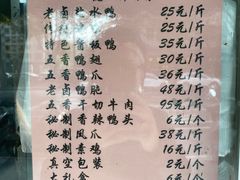 老卤盐水鸭 25元/斤
传统烤鸭 25元/斤
特色酱板鸭 35元/斤
五香鸭翅 30元/斤
五香鸭爪 36元/斤
老卤鸭肫 48元/斤
五香干切牛肉 95元/斤
秘制香辣鸭头 6元/个
秘制凤爪 38元/斤
秘制素鸡 16元/斤
真空包装 2元/个
大礼盒 6元/个